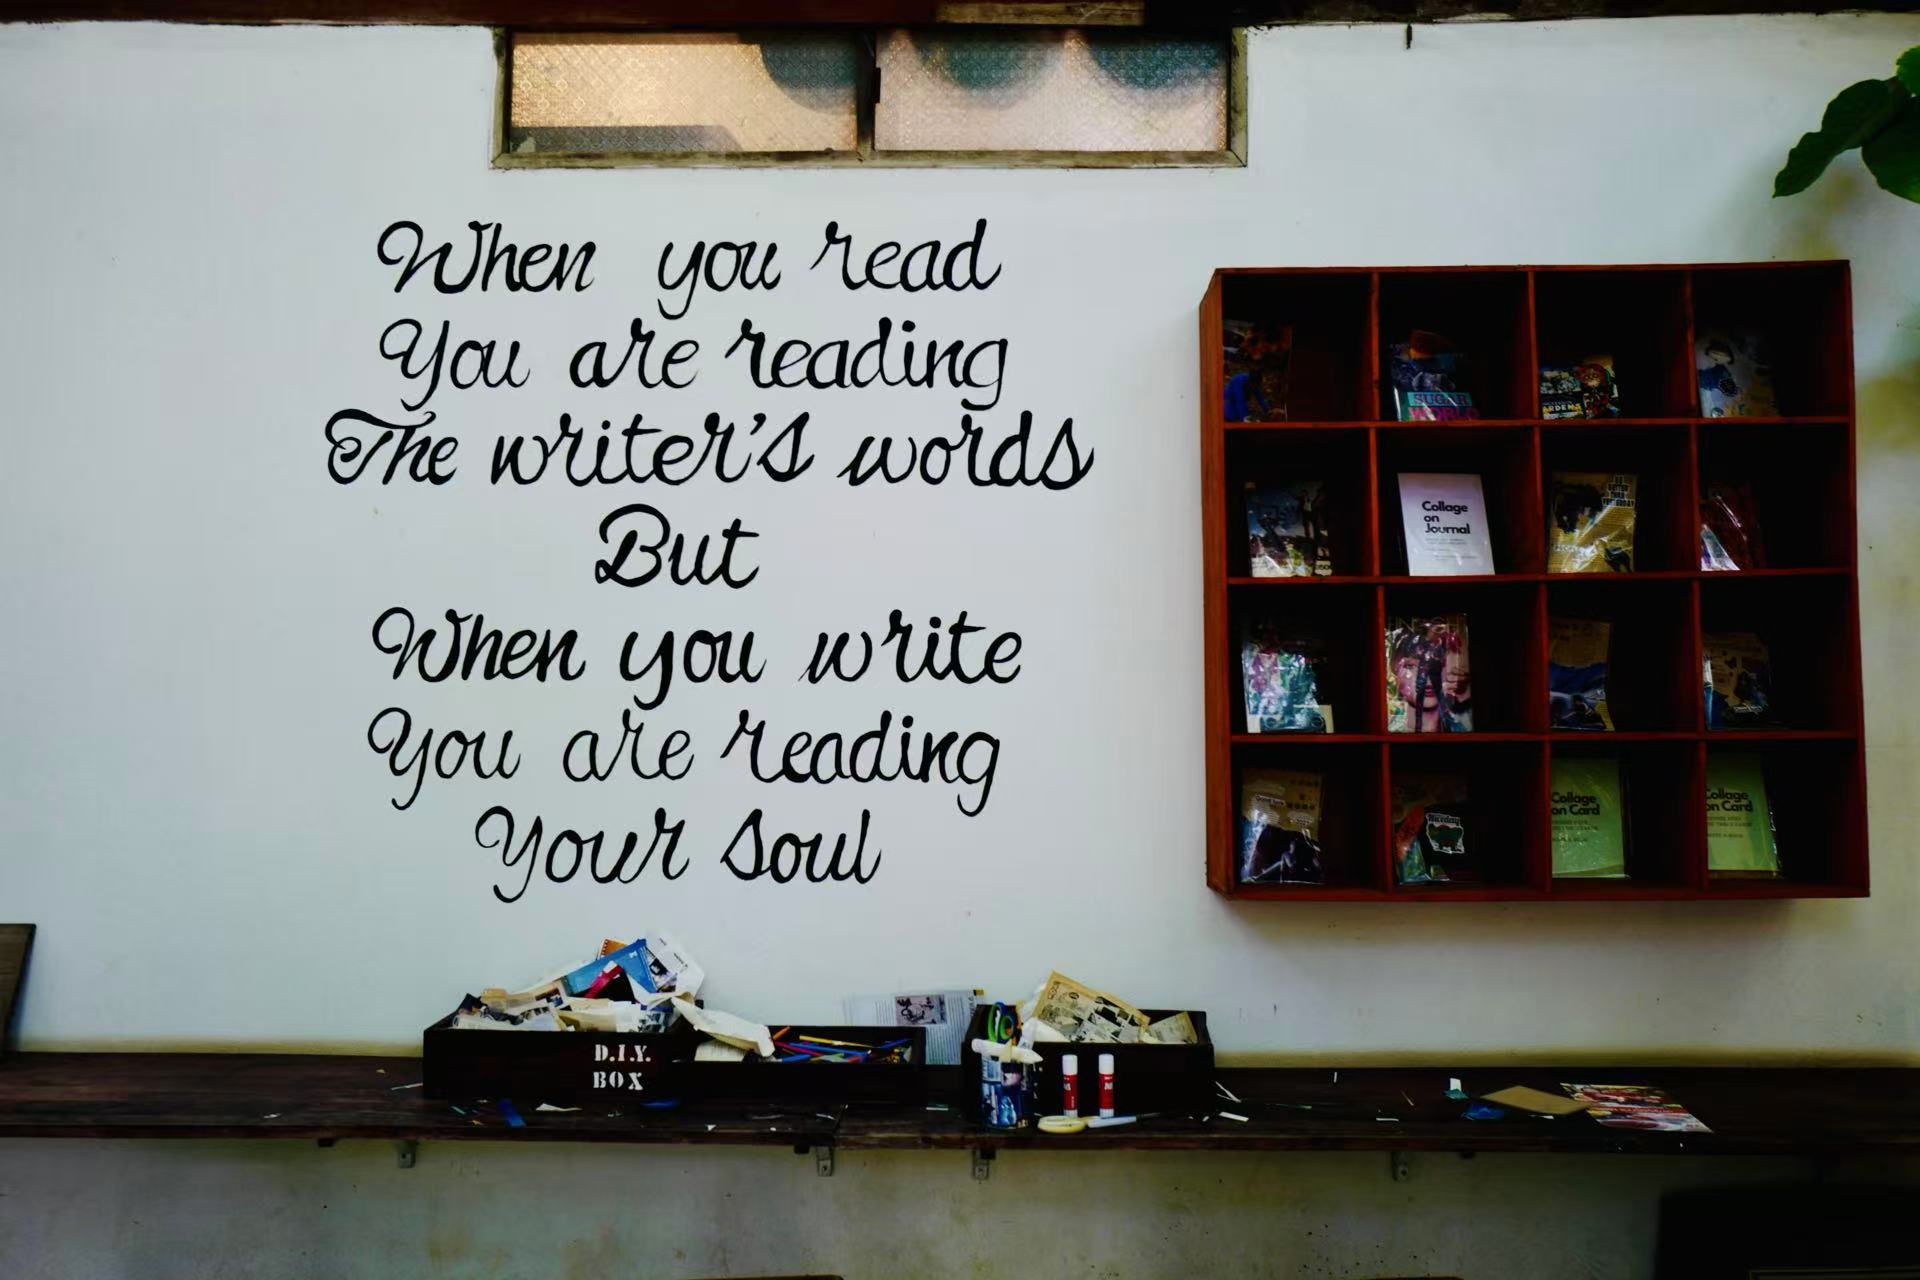 When you read
You are reading
The writer's words
But
When you write
You are reading
Your soul
SUGAR
WORLD
Collage
on
Journal
Collage
on Card
Collage
on Card
D.I.Y.
BOX